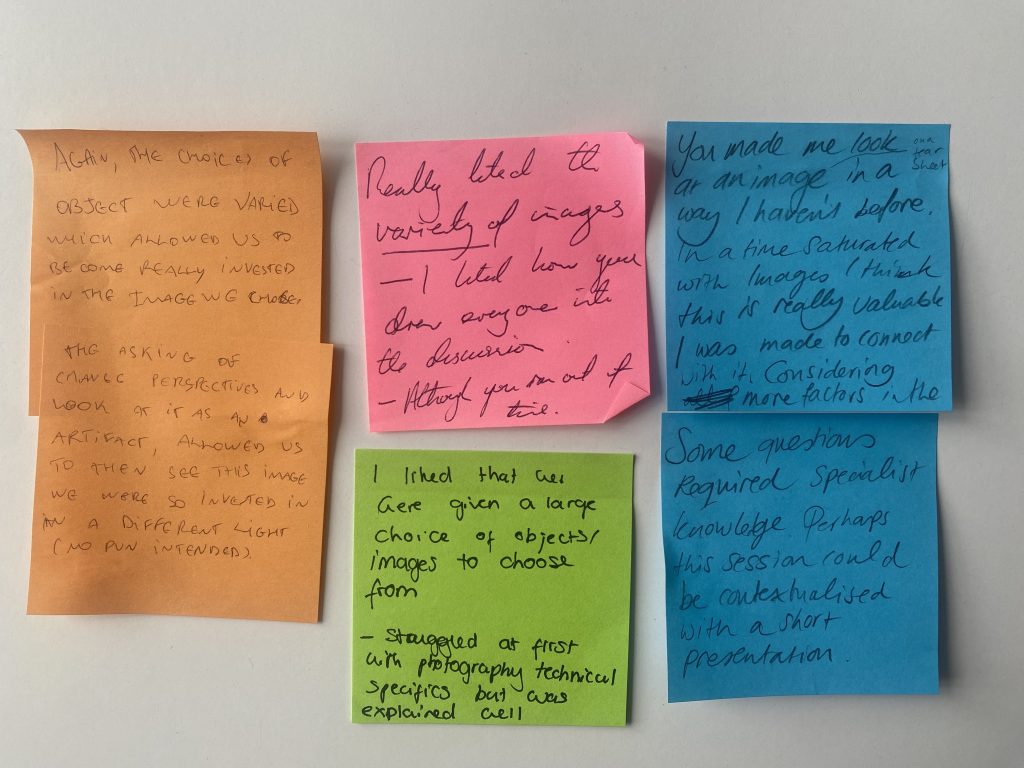 AGAIN, THE CHOICES OF
OBJECT WERE VARIED
WHICH ALLOWED US TO
BECOME REALLY INVESTED
IN THE IMAGE WE CHOSE.
THE ASKING OF
CHANGE PERSPECTIVES AND
LOOK AT IT AS AN
ARTIFACT, ALLOWED US
TO THEN SEE THIS IMAGE
WE WERE SO INVESTED IN
IN A DIFFERENT LIGHT
(NO PUN INTENDED)
Really liked the
variety of images
— I liked how you
drew everyone into
the discussion
- Although you ran out of
time.
I liked that we
were given a large
choice of objects/
images to choose
from
- Struggled at first
with photography technical
specifics but was
explained well
You made me look on a tear sheet
at an image in a
way I haven't before.
In a time saturated
with images I think
this is really valuable
I was made to connect
with it. Considering
more factors in the
Some questions
required specialist
knowledge. Perhaps
this session could
be contextualised
with a short
presentation.